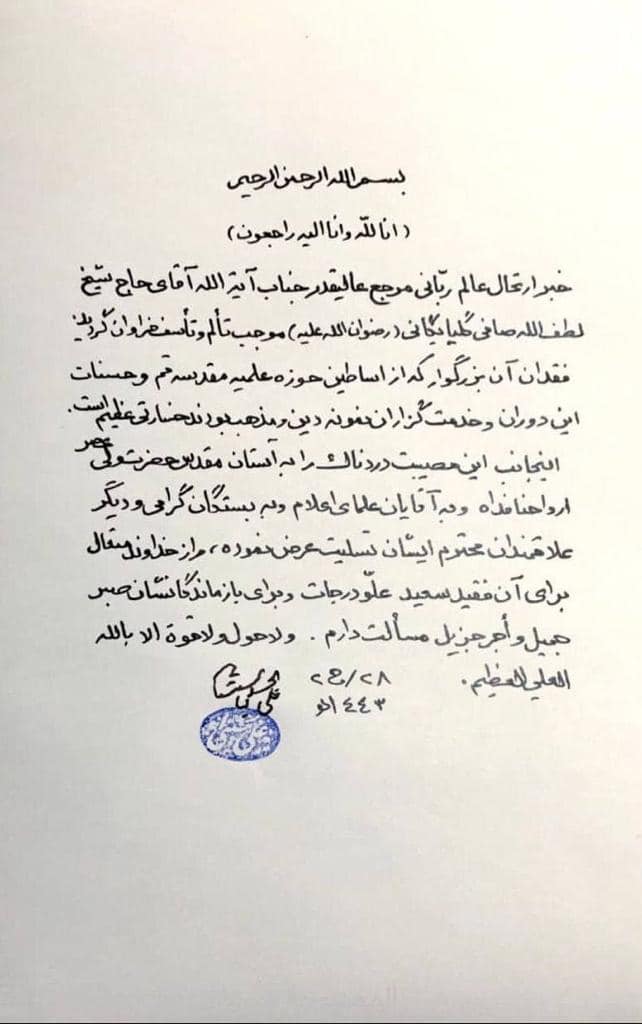 بسم الله الرحمن الرحیم
(انا للّه وانا الیه راجعون)
خبر ارتحال عالم ربّانی مرجع عالیقدر جناب آیة الله آقای حاج شیخ
لطف الله صافی گلپایگانی (رضوان الله علیه) موجب تألم وتأسف فراوان گردید
فقدان آن بزرگوار که از اساطین حوزه علمیه مقدسه قم وحسنات
این دوران وخدمت گزاران نمونه دین ومذهب بودند خسارتی عظیم است.
اینجانب این مصیبت دردناک را به آستان مقدس حضرت ولی عصر
ارواحنا فداه وبه آقایان علمای اعلام وبه بستگان گرامی ودیگر
علاقمندان محترم ایشان تسلیت عرض نموده، واز خداوند متعال
برای آن فقید سعید علوّ درجات وبرای بازماندگانشان صبر
جمیل وأجر جزیل مسألت دارم. ولا حول ولا قوة الا بالله
العلي العظیم.
٢٨/ج٢
١٤٤٣هـ
علي الحسيني السيستاني